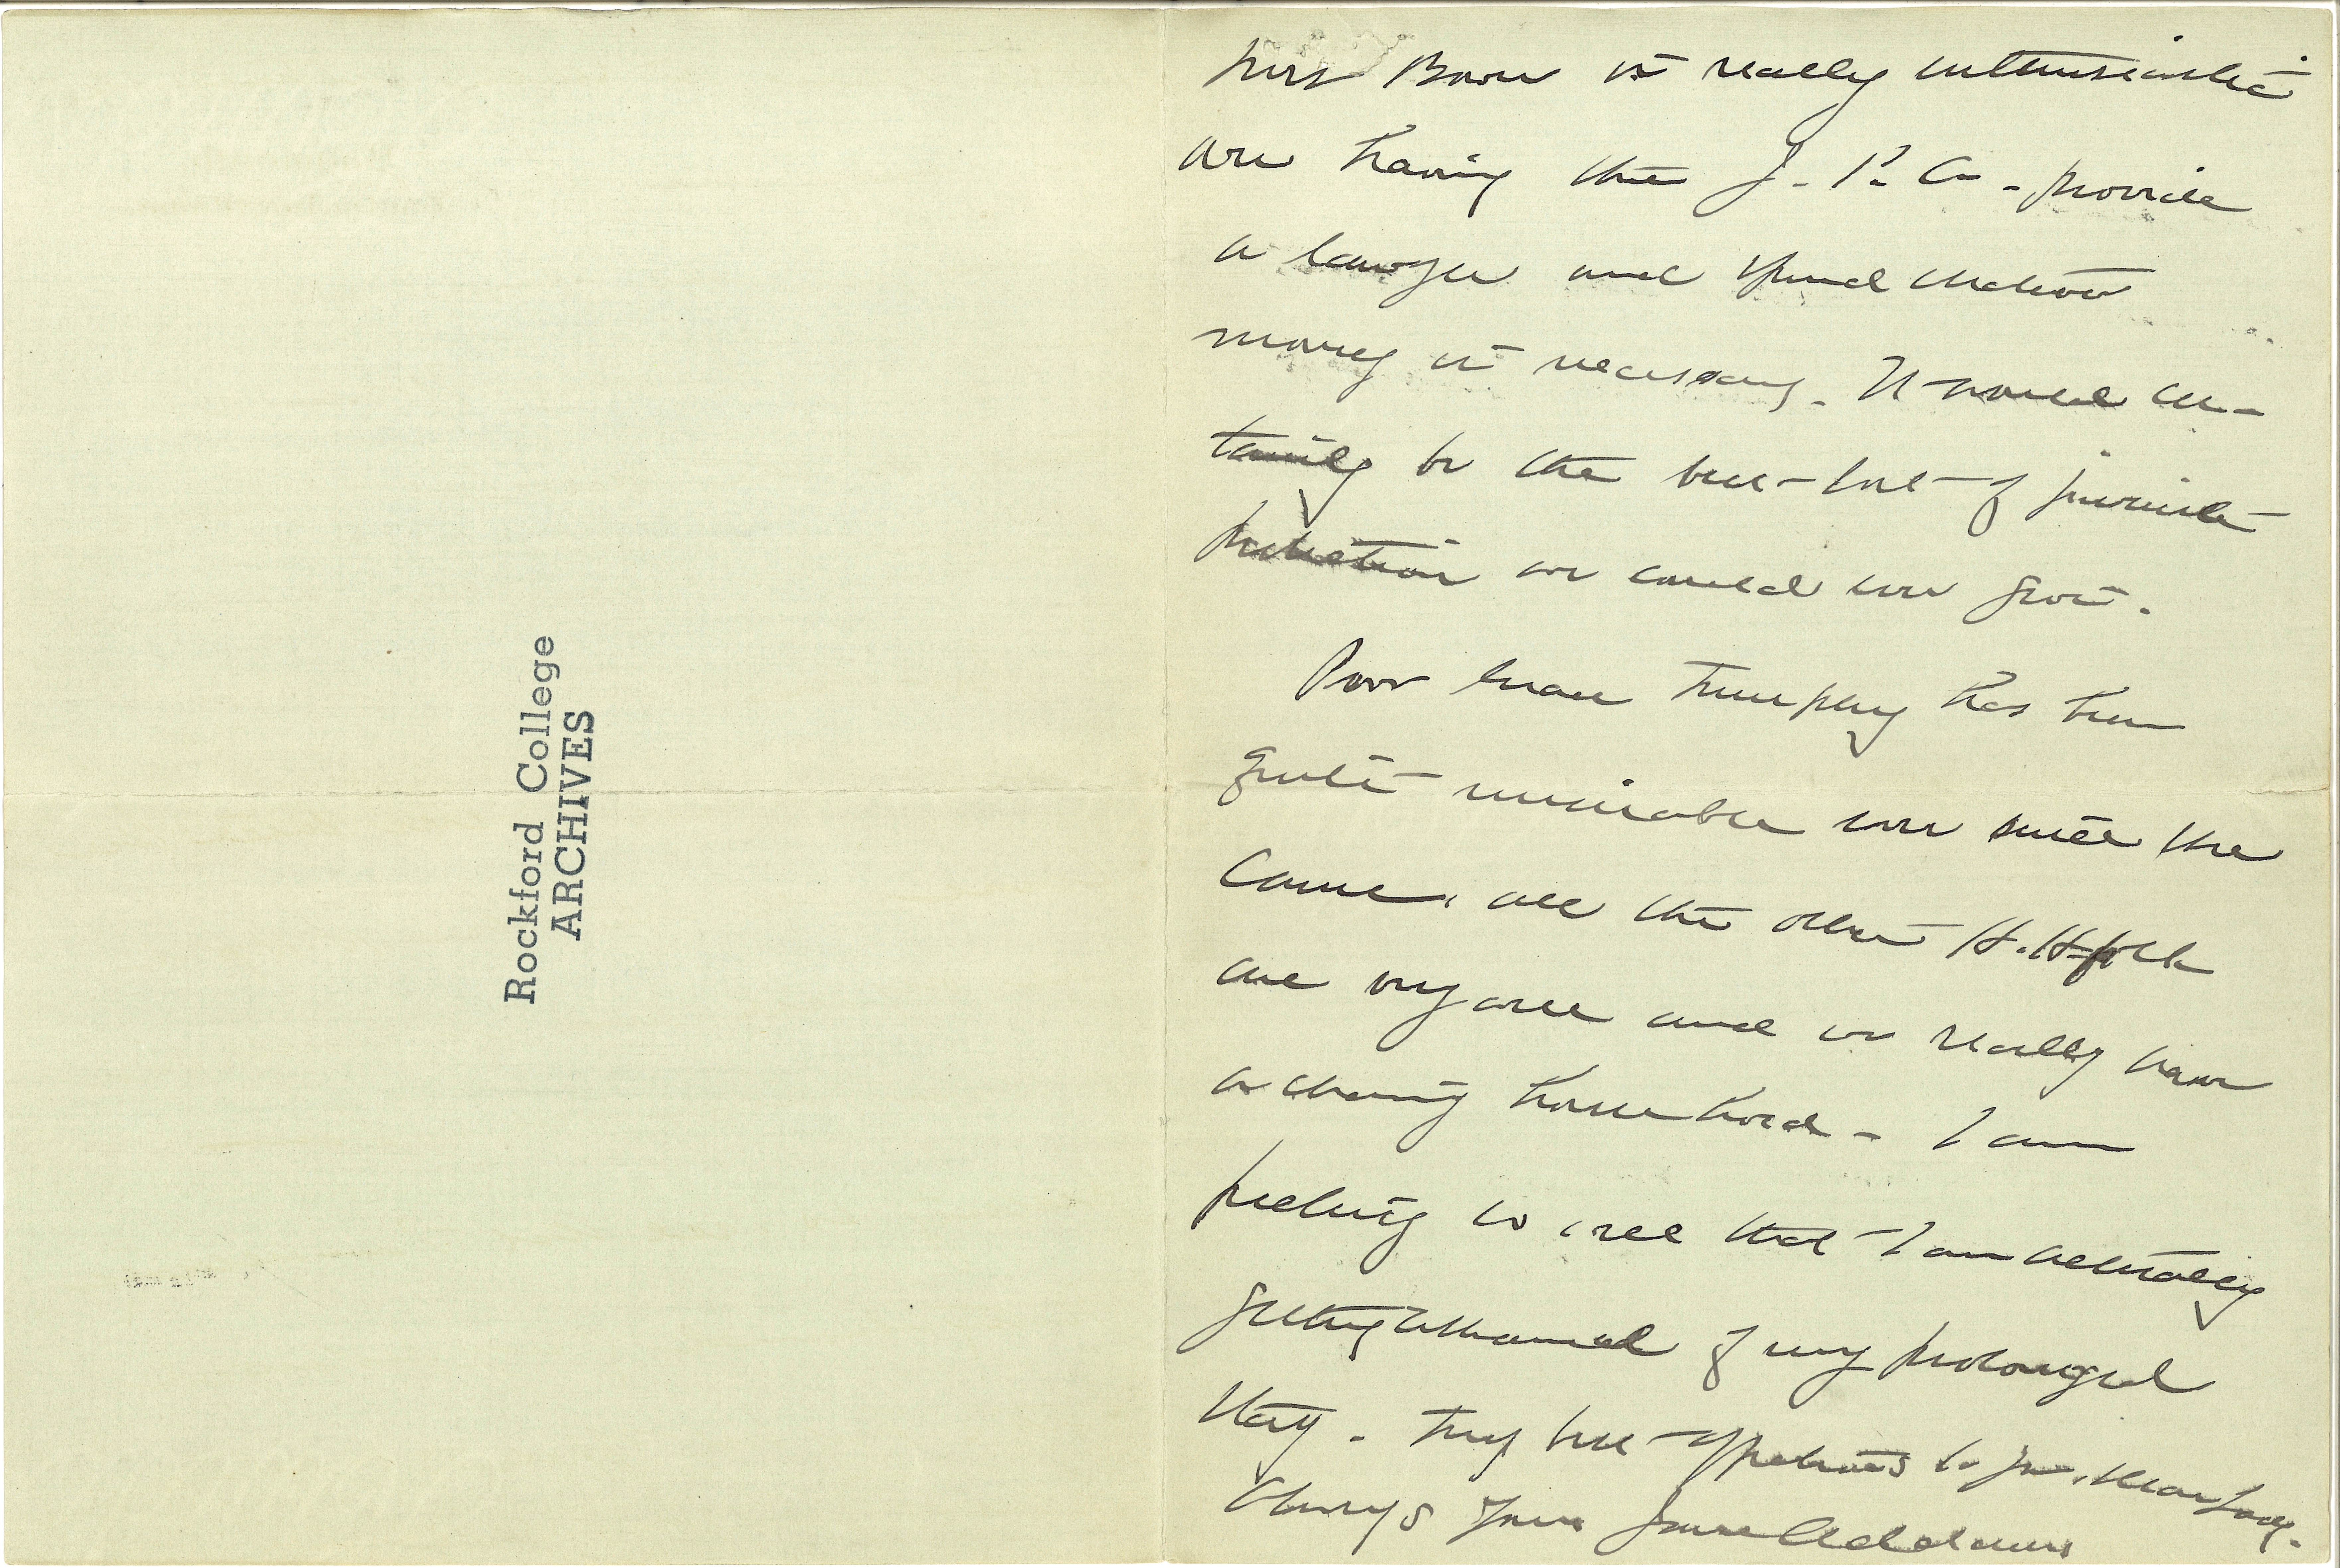 Rockford College
ARCHIVES
Miss Bowen is really enthusiastic
over having the J. P. A. - provide
a lawyer and spend
money if necessary. It would cer-
tainly be the best sort of juvenile
protection we could now give.
Poor Miss has been
quite miserable ever since she
came, all the other H.H. folk
are very well and we really have
a charming household - I am
feeling so well that I am actually
getting ashamed of my prolonged
stay. My best affections to you, dear lady.
Always yours Jane Addams